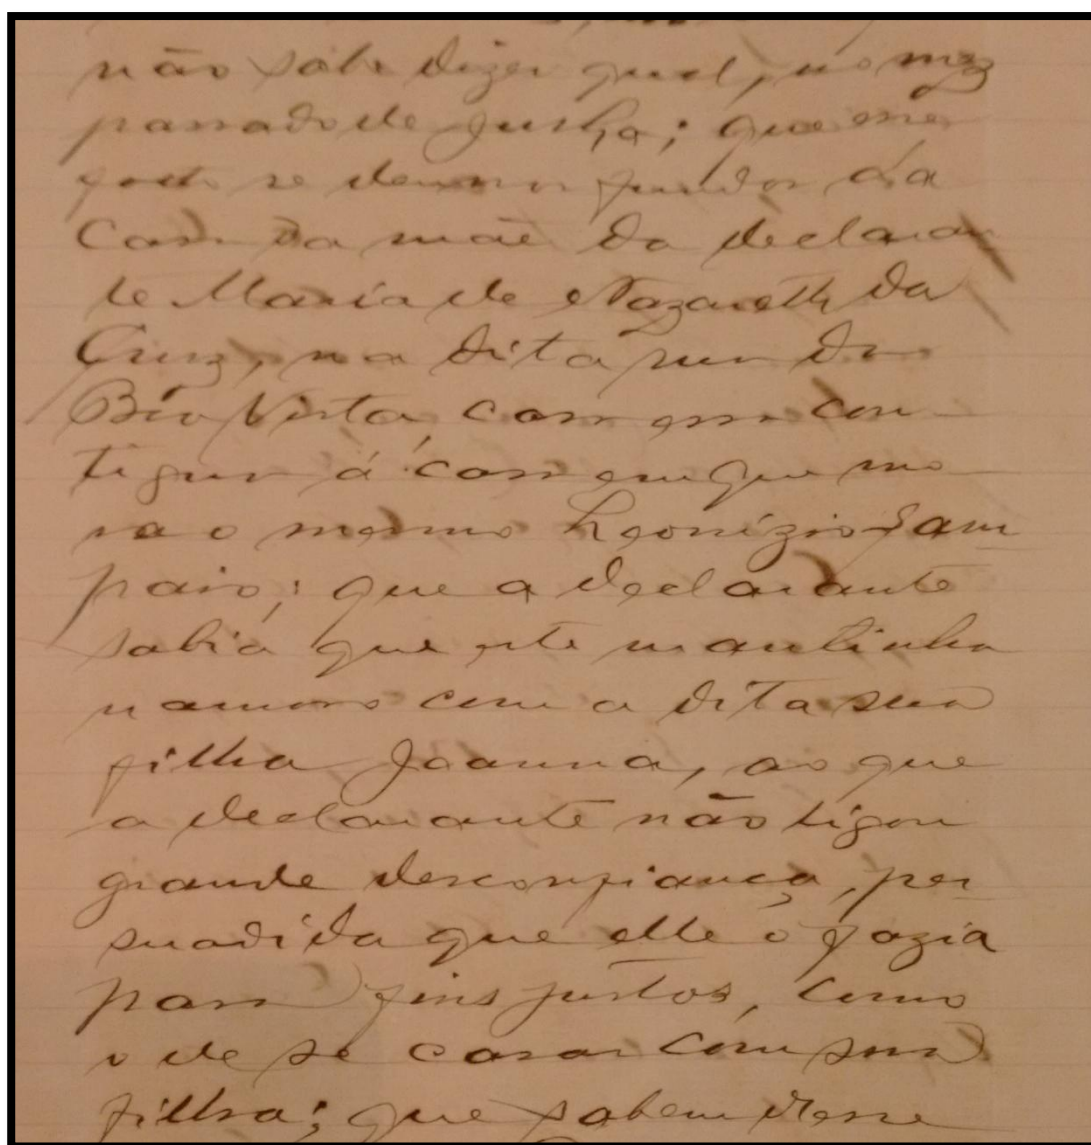 não sabe dizer qual, no mez
passado de Junho; que esse
facto se deu nos fundos da
Casa da mãe da declaran
te Maria de Nazareth da
Cruz, na dita rua da
Bôa Vista, casa essa con-
tigua á casa em que mo
ra o mesmo Leonizio Sam
paio; que a declarante
sabia que este mantinha
namoro com a dita sua
filha Joanna, ao que
a declarante não ligou
grande desconfiança, per
suadida que elle o fazia
para fins justos, como
o de se casar com sua
filha; que sabem desse